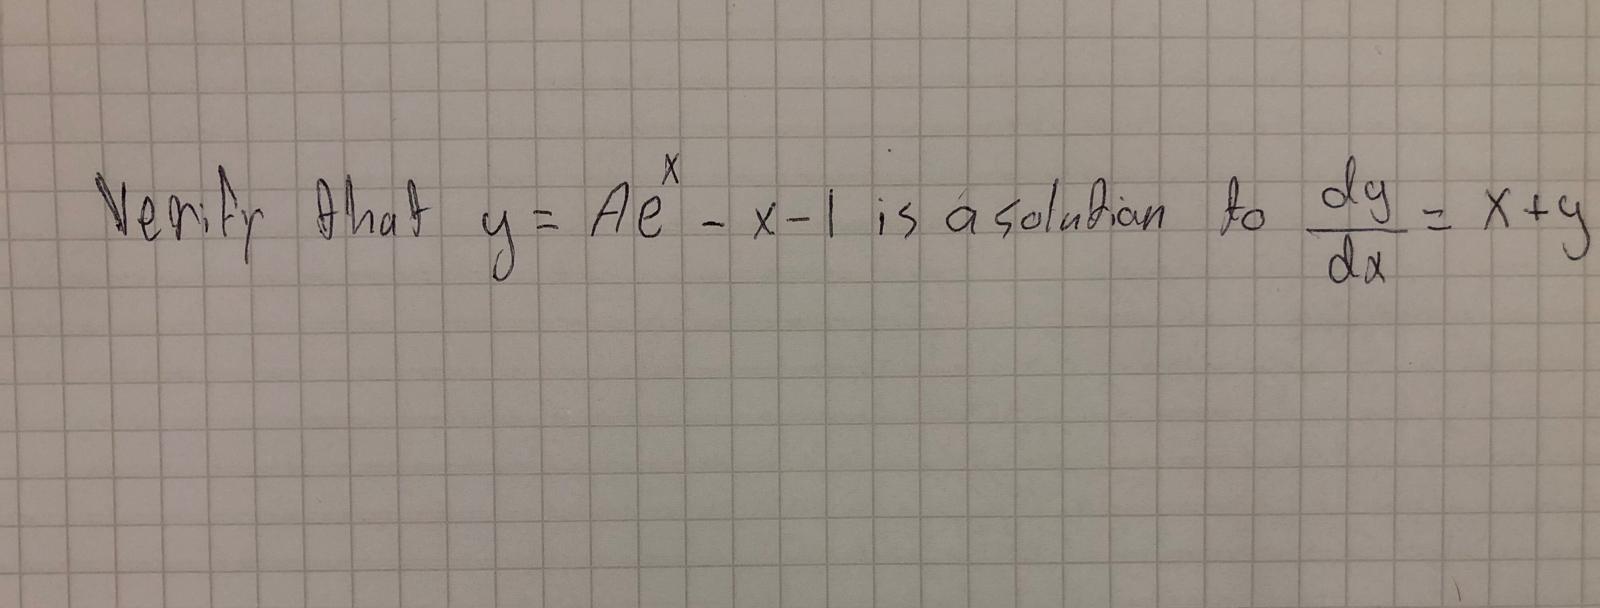 Verify that y = Ae^x - x - 1 is a solution to dy/dx = x + y